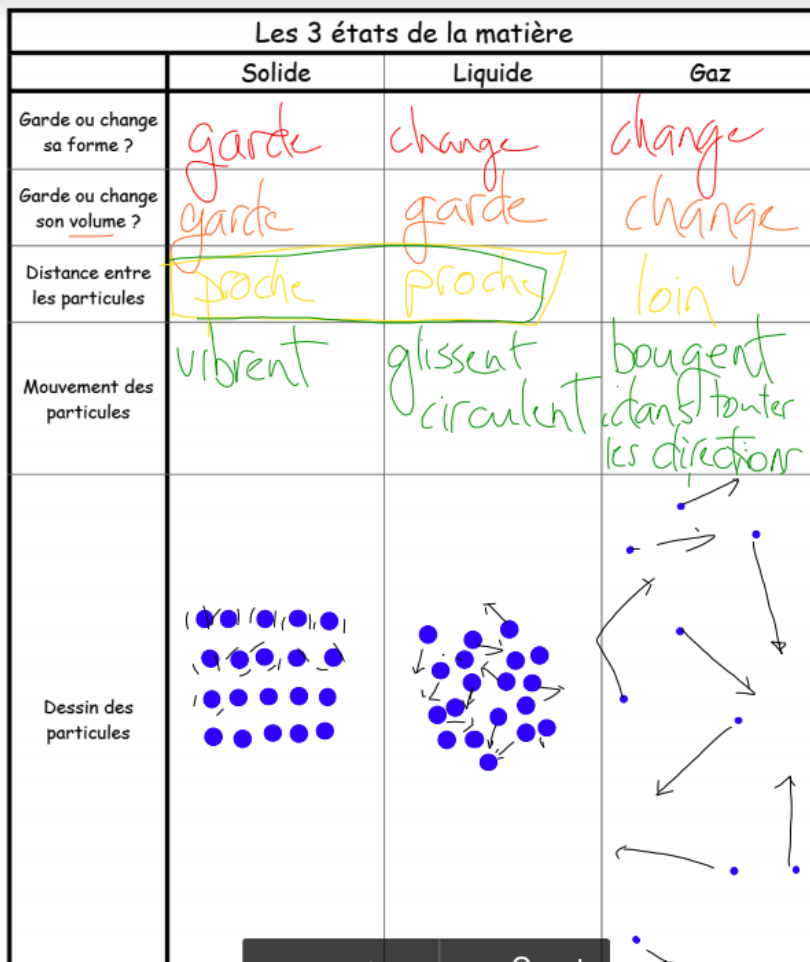 Les 3 états de la matière
Solide Liquide Gaz
Garde ou change
sa forme ?
garde change change
Garde ou change
son volume ?
garde garde change
Distance entre
les particules
proche proche loin
Mouvement des
particules
vibrent
glissent
circulent
bougent
dans toutes
les directions
Dessin des
particules